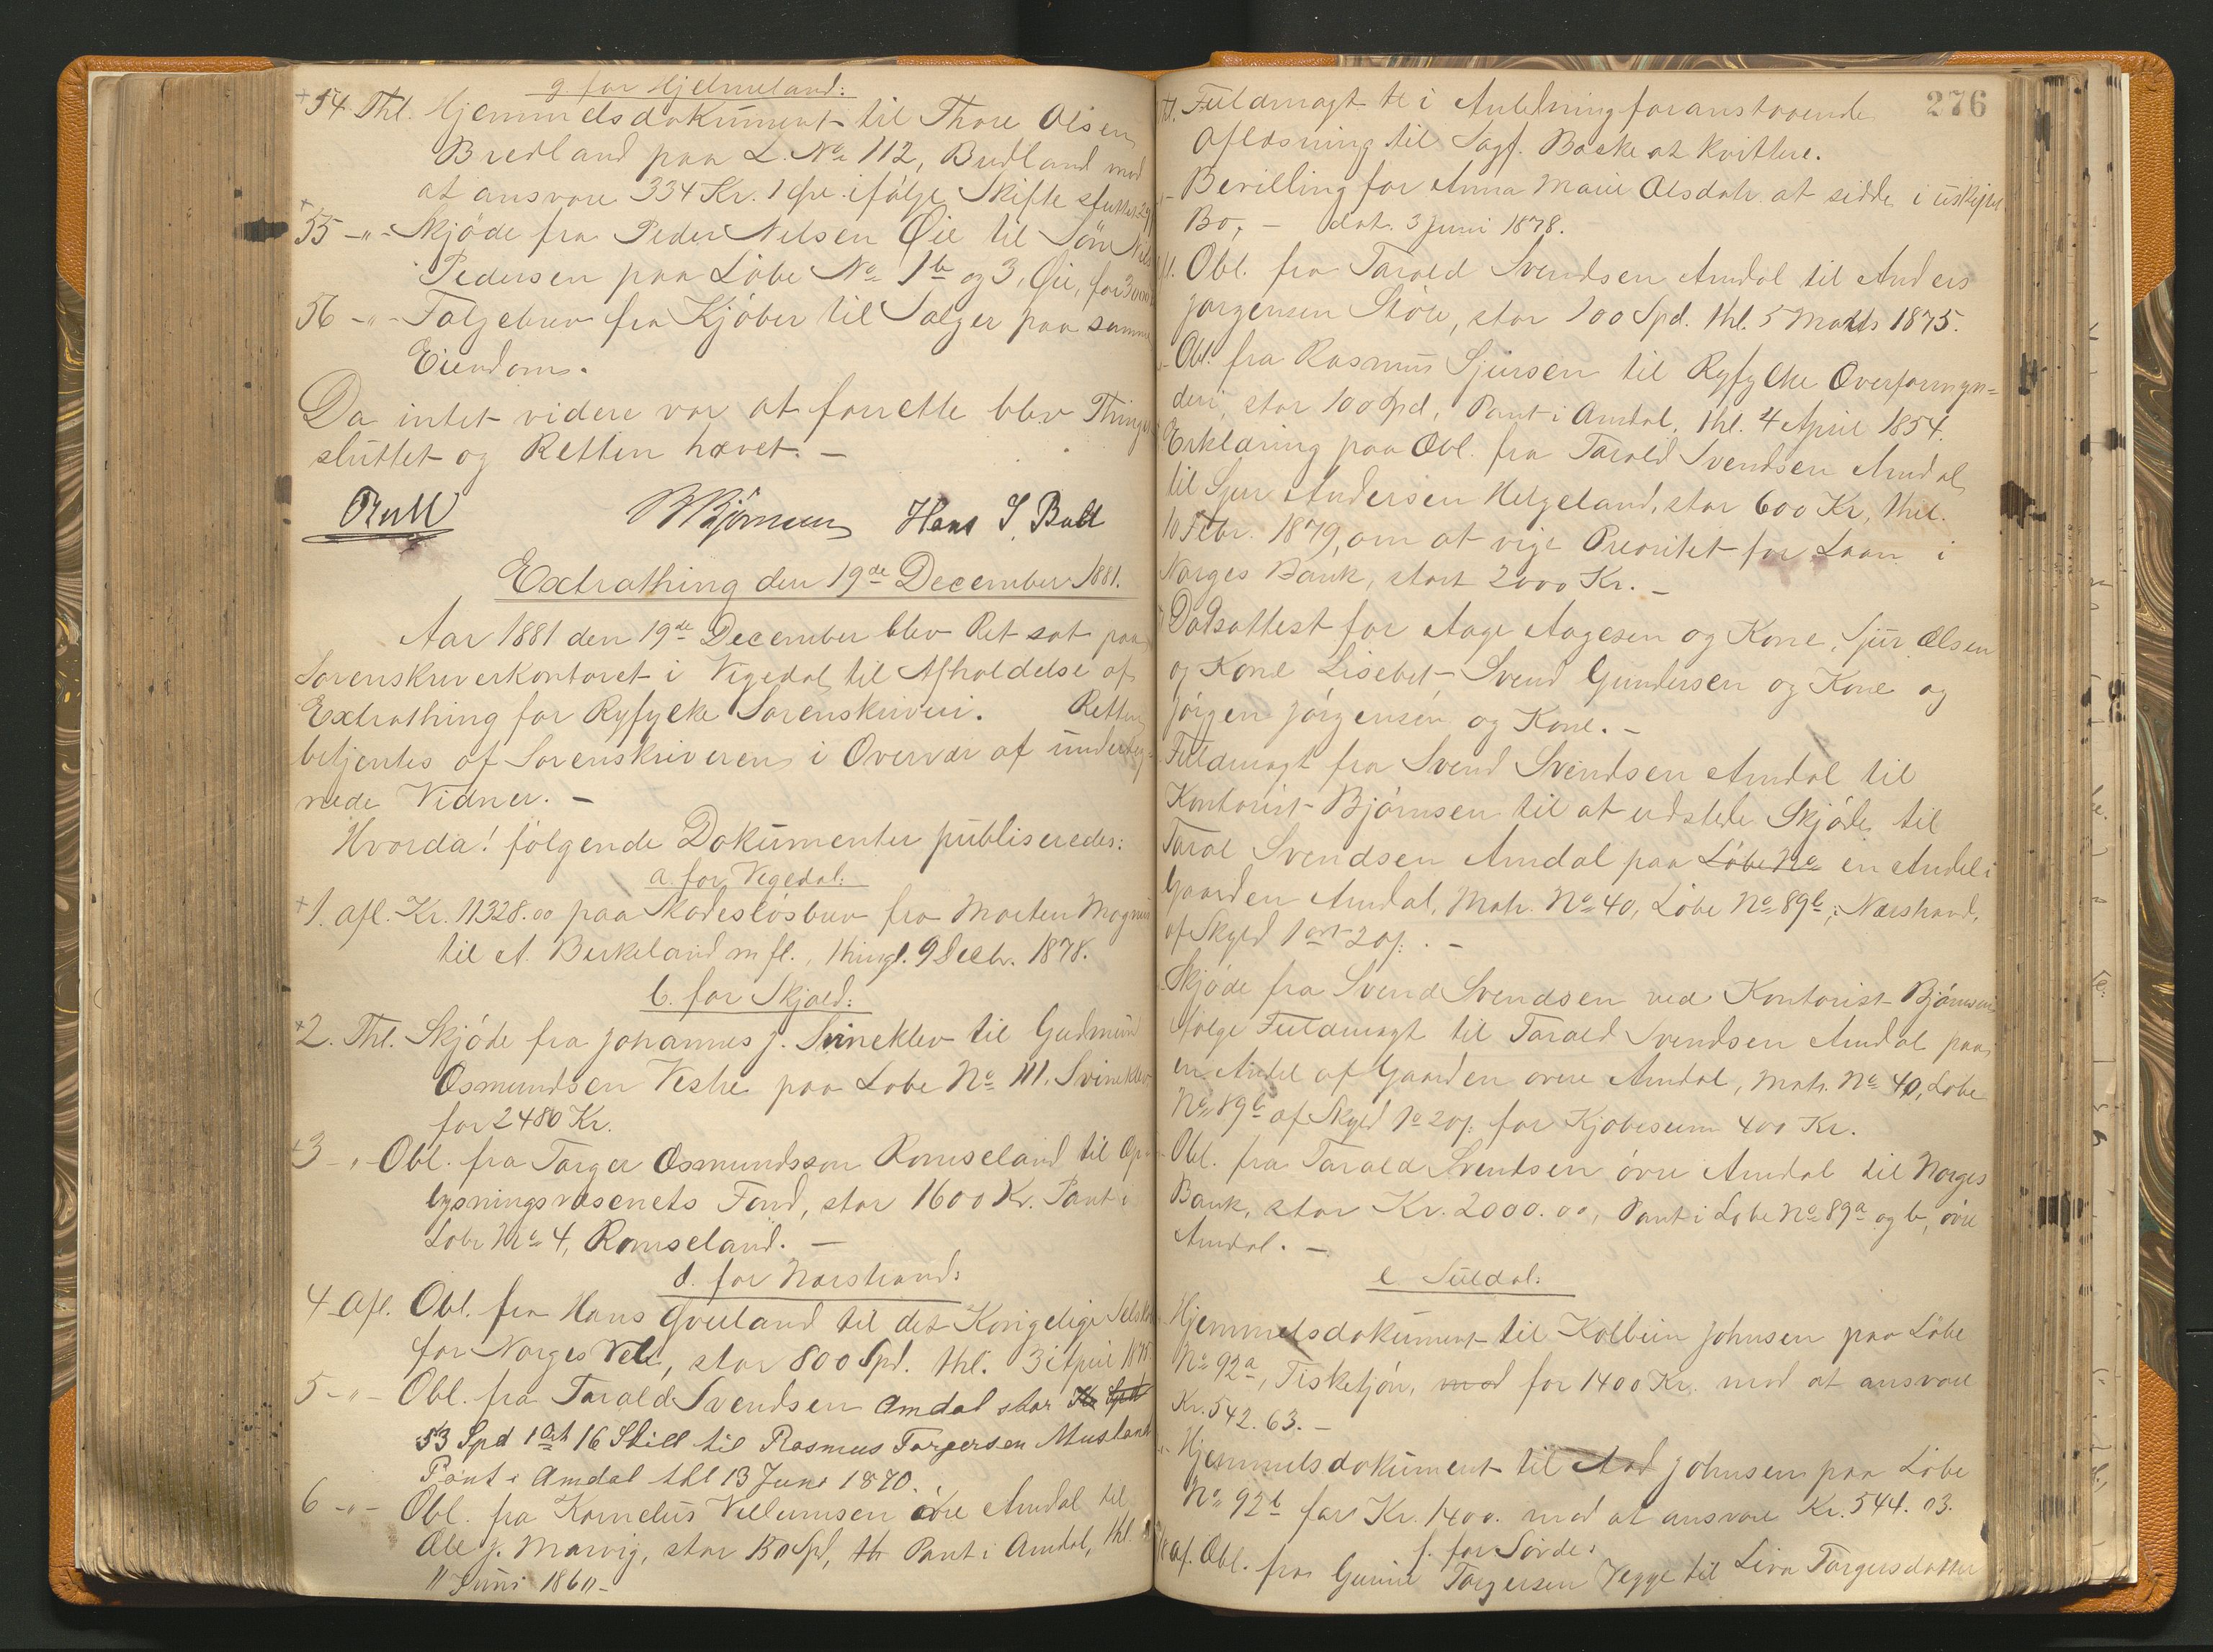 g. for Hjelmeland:
54 Thl. Hjemmelsdokument til Thore Olsen
Bredland paa L. No 112, Bredland mod
at ansvare 334 Kr. 1 Øre ifølge Skifte sluttet
55 -"- Skjöde fra Peder Nelsen Øie til Sön Nils
Pedersen paa Löbe No 1b og 3, Øie, for 3000
56 -"- Følgebrev fra Kjöber til Sælger paa samme
Eiendom.
Da intet videre var at forrette blev Thinget
sluttet og Retten hævet. -
Hans S. Bull
Extrathing den 19de December 1881.
Aar 1881 den 19de December blev Ret sat paa
Sorenskriverkontoret i Vigedal til Afholdelse af
Extrathing for Ryfylke Sorenskriveri. Retten
betjentes af Sorenskriveren i Overvær af underteg-
nede Vidner. -
Hvorda! følgende Dokumenter publiseredes:
a. for Vegedal:
1. Afl. Kr. 11328.00 paa Skadeslösbrev fra Morten Magnus
til A. Birkeland m fl., thingl. 9 Decbr. 1878.
b. for Skjold:
2. Thl. Skjöde fra Johannes J. Svineklev til Gudmund
Osmundsen Vestre paa Lobe No 111. Svineklev
for 2480 Kr.
3 -"- Obl. fra Torger Osmundsson Romseland til Op-
lysningsvæsenets Fond, stor 1600 Kr. Pant i
Lobe No 4, Romseland. -
d. for Nærstrand:
4 Afl. Obl. fra Hans Gveiland til det Kongelige Selskab
for Norges Vel, stor 800 Spd. thl. 3 April
5 -"- Obl. fra Tarald Svendsen Amdal stor
53 Spd 1 Ort 16 Skill til Rasmus Torgersen Musland
Pant i Amdal thl 13 Juni 1870.
6 -"- Obl. fra Kornelius Vellumsen övre Amdal til
Ole J. Marvig, stor 150 Spd, Pant i Amdal, thl.
11 Juni 1860 -
276
Fuldmagt til i Anledning foranstaaende
Aflösning til Sagf. Backe at kvittere.
Bevilling for Anna Marie Olsdatr. at sidde i uskiftet
Bo, - dat. 3 Juni 1878.
Obl. fra Tarald Svendsen Amdal til Anders
Jørgensen Støle, stor 100 Spd. thl. 5 Marts 1875.
Obl. fra Rasmus Sjursen til Ryfylke Overformyn=
deri, stor 100 Spd, Pant i Amdal, thl. 4 April 1854.
Erklæring paa Obl. fra Tarald Svendsen Amdal
til Sjur Andersen Helgeland, stor 600 Kr, thl.
10 Febr. 1879, om at vige Prioritet for Laan i
Norges Bank, stort 2000 Kr. -
Dødsattest for Aage Aagesen og Kone, Sjur Olsen
og Kone Lisebet - Svend Gundersen og Kone og
Jörgen Jörgensen og Kone. -
Fuldmagt fra Svend Svendsen Amdal til
Kontorist Bjørnsen til at udstede Skjöde til
Tarald Svendsen Amdal paa Löbe No en Andel i
Gaarden Amdal, Matr. No 40, Löbe No 89b, i Nærstrand,
af Skyld 1 ort 20 s. -
Skjöde fra Svend Svendsen ved Kontorist Bjørnsen
ifølge Fuldmagt til Tarald Svendsen Amdal paa
en Andel af Gaarden övre Amdal, Matr. No 40, Löbe
No 89b af Skyld 1 o 20 s. for Kjøbesum 400 Kr.
Obl. fra Tarald Svendsen övre Amdal til Norges
Bank, stor Kr. 2000.00, Pant i Lobe No 89a og b, övre
Amdal. -
e Suldal:
Hjemmelsdokument til Kolbein Johnsen paa Löbe
No 92a, Fisketjön, mod for 1400 Kr. mod at ansvare
Kr. 542.63. -
Hjemmelsdokument til Aad Johnsen paa Löbe
No 92b for Kr. 1400. mod at ansvare Kr. 544.03.
f. for Sövde.
Af. Obl. fra Gunne Torgersen Vegge til Liva Torgersdatter